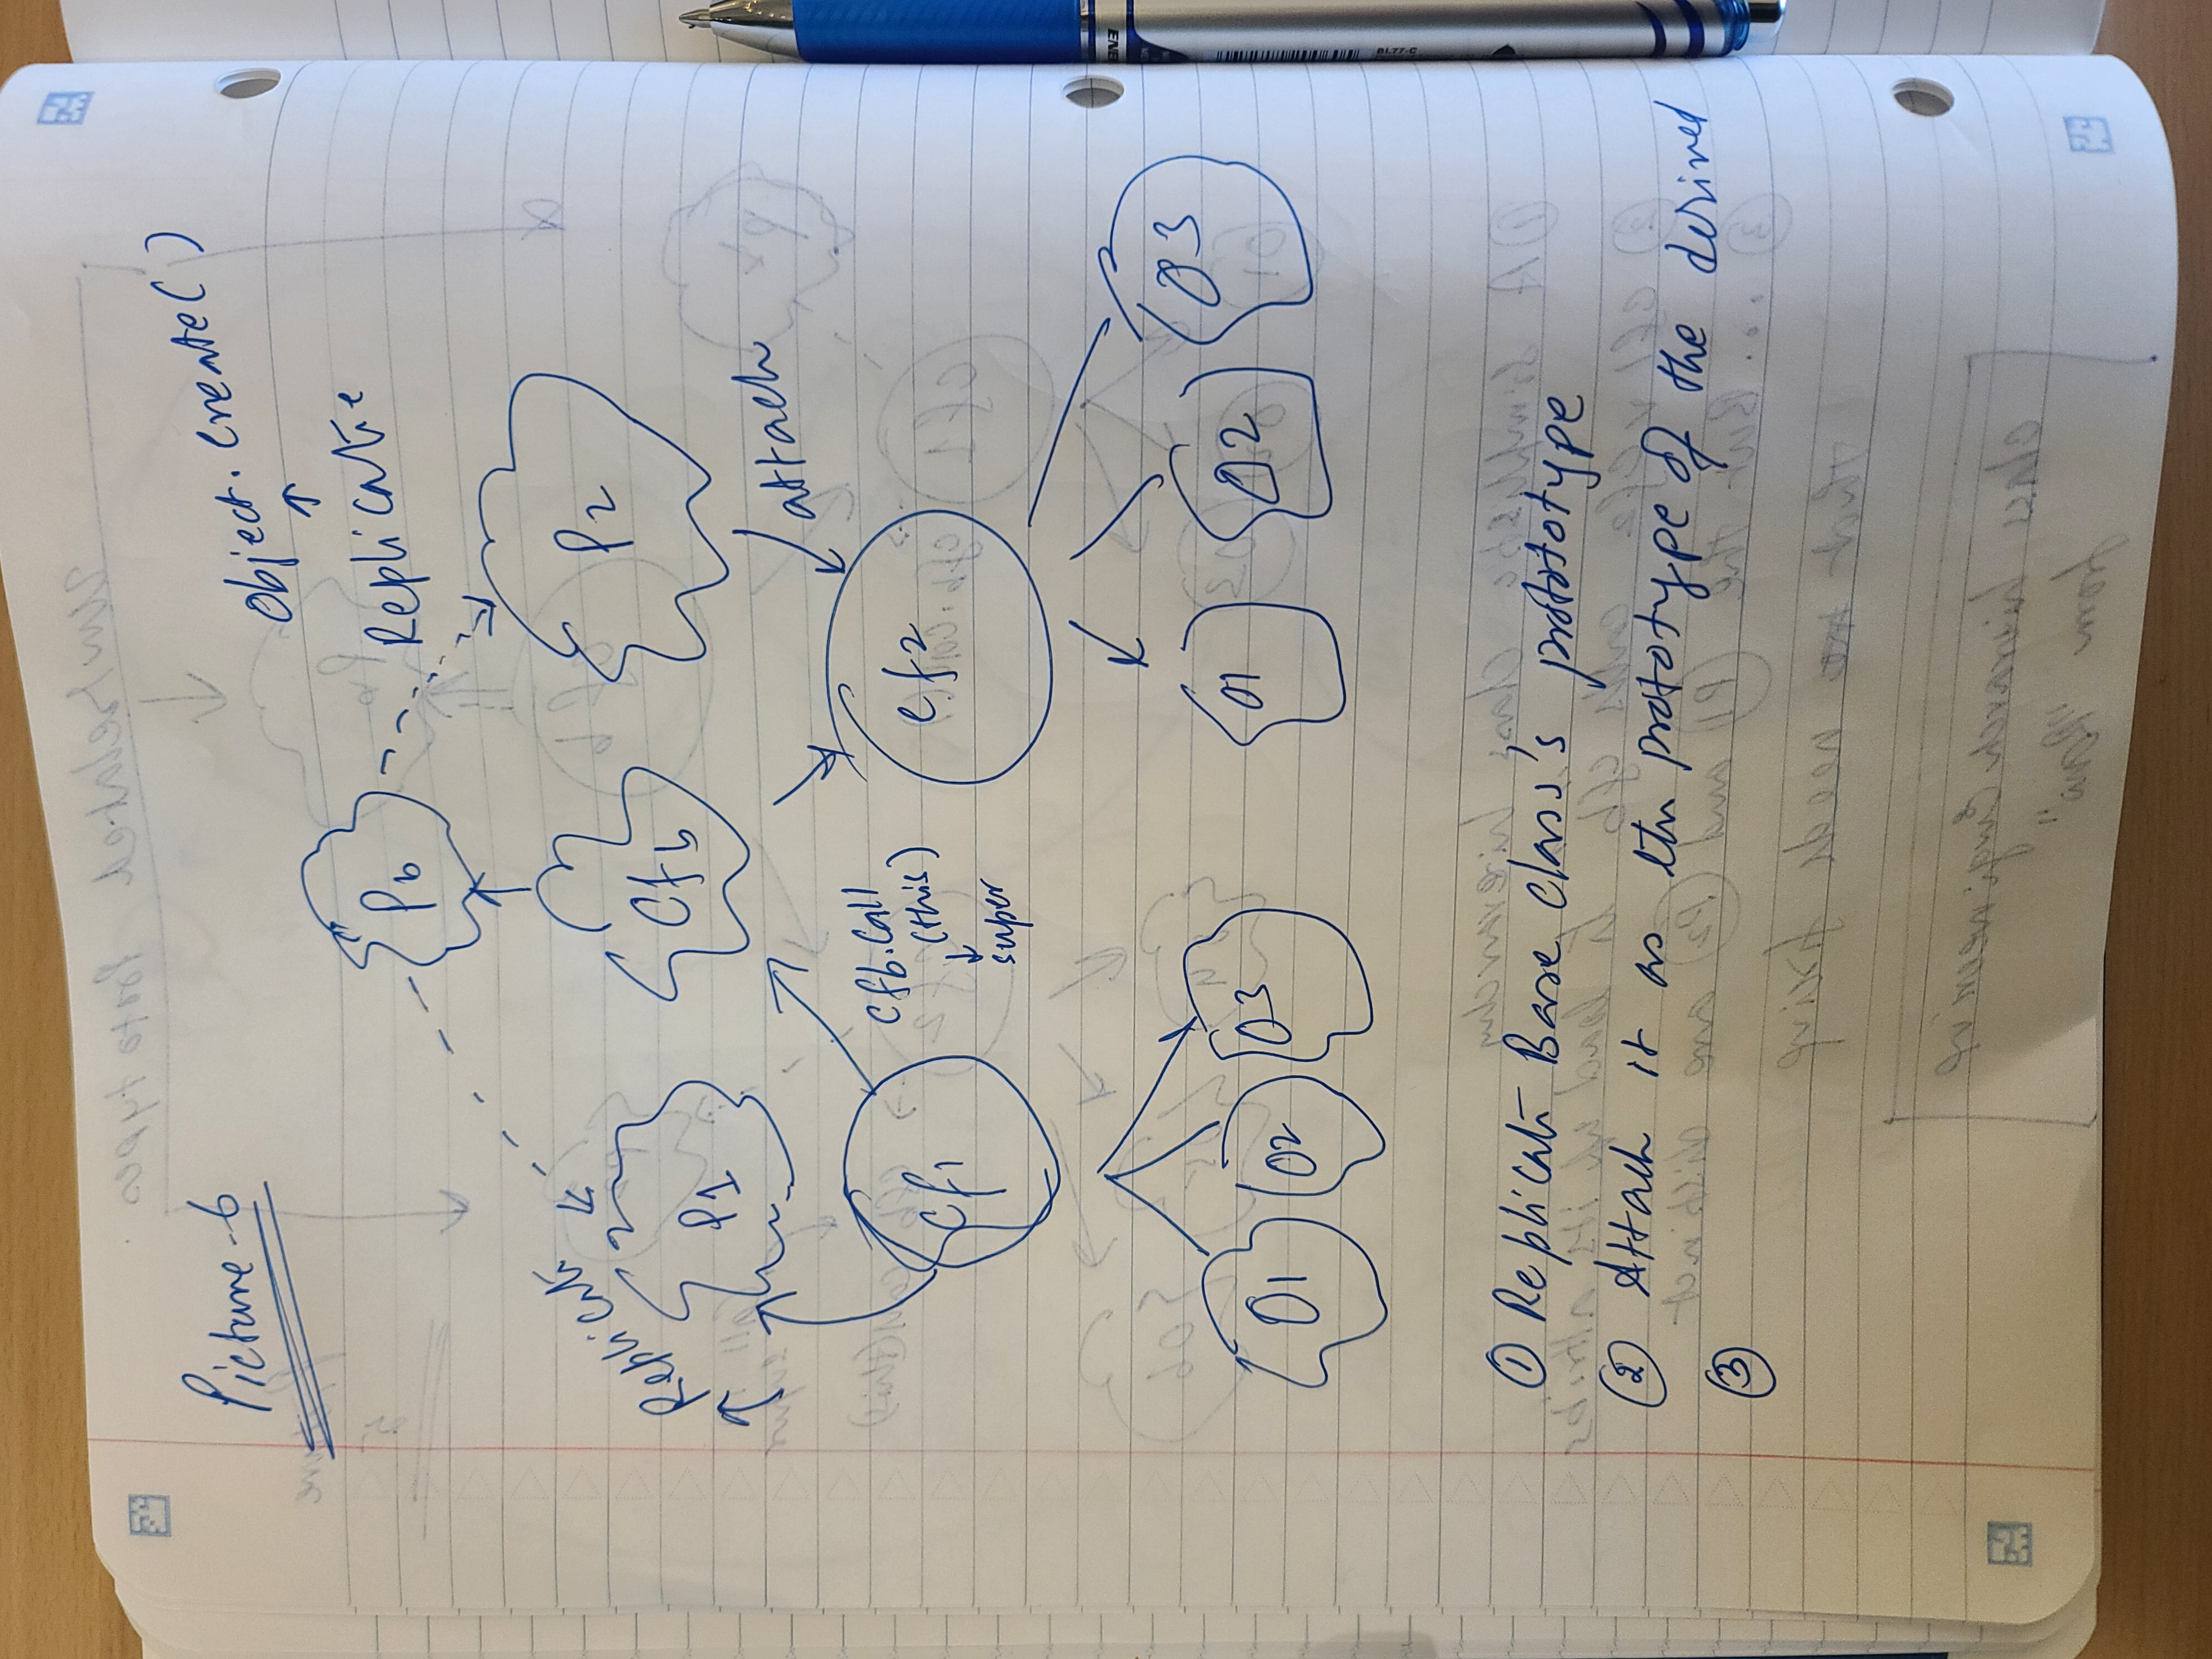 Picture-6
Object.Create()
Replicatie
Pb
Replicati
P2
P1
Cfb
attach
Cfb.Call
(this)
super
Cf1
Cf2
O1
O2
O3
O1
O2
O3
① Replicati Base class's protototype
② Attach it as the prototype of the derived
③